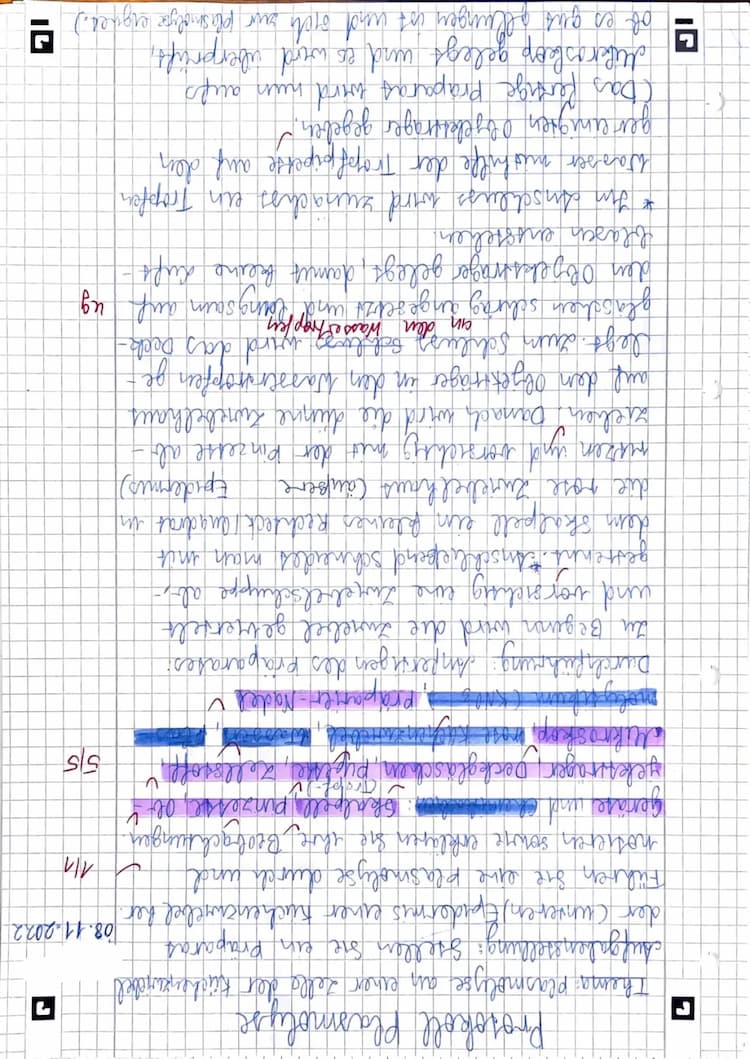 Protokoll Plasmolyse
Thema: Plasmolyse an einer Zelle der Küchenzwiebel
08.11.2022
Aufgabenstellung: Stellen Sie ein Präparat
der (unteren) Epidermis einer Küchenzwiebel her.
Führen Sie eine Plasmolyse durch und
1/1
notieren sowie erklären Sie ihre Beobachtungen.
Geräte und Chemikalien: Skalpell, Pinzette, Ob-
(Tropf-)
jektträger, Deckgläschen, Pipette, Zellstoff,
5/5
Mikroskop, rote Küchenzwiebel, Wasser,
Präparier-Nadel
Durchführung: Anfertigen des Präparates:
Zu Beginn wird die Zwiebel geviertelt
und vorsichtig eine Zwiebelschuppe ab-
getrennt.* Anschließend schneidet man mit
dem Skalpell ein kleines Rechteck/Quadrat in
die rote Zwiebelhaut (äußere Epidermis)
ritzen und vorsichtig mit der Pinzette ab-
ziehen. Danach wird die dünne Zwiebelhaut
auf den Objektträger in den Wassertropfen ge-
legt. Zum Schluss wird das Deck-
an den Wassertropfen
gläschen schräg angesetzt und langsam auf
ug
den Objektträger gelegt, damit keine Luft-
blasen entstehen.
* Im Anschluss wird zunächst ein Tropfen
Wasser mithilfe der Tropfpipette auf den
gereinigten Objektträger gegeben.
(Das fertige Präparat wird nun aufs
Mikroskop gelegt und es wird überprüft,
ob es gut gelungen ist und sich zur Plasmolyse eignet.)